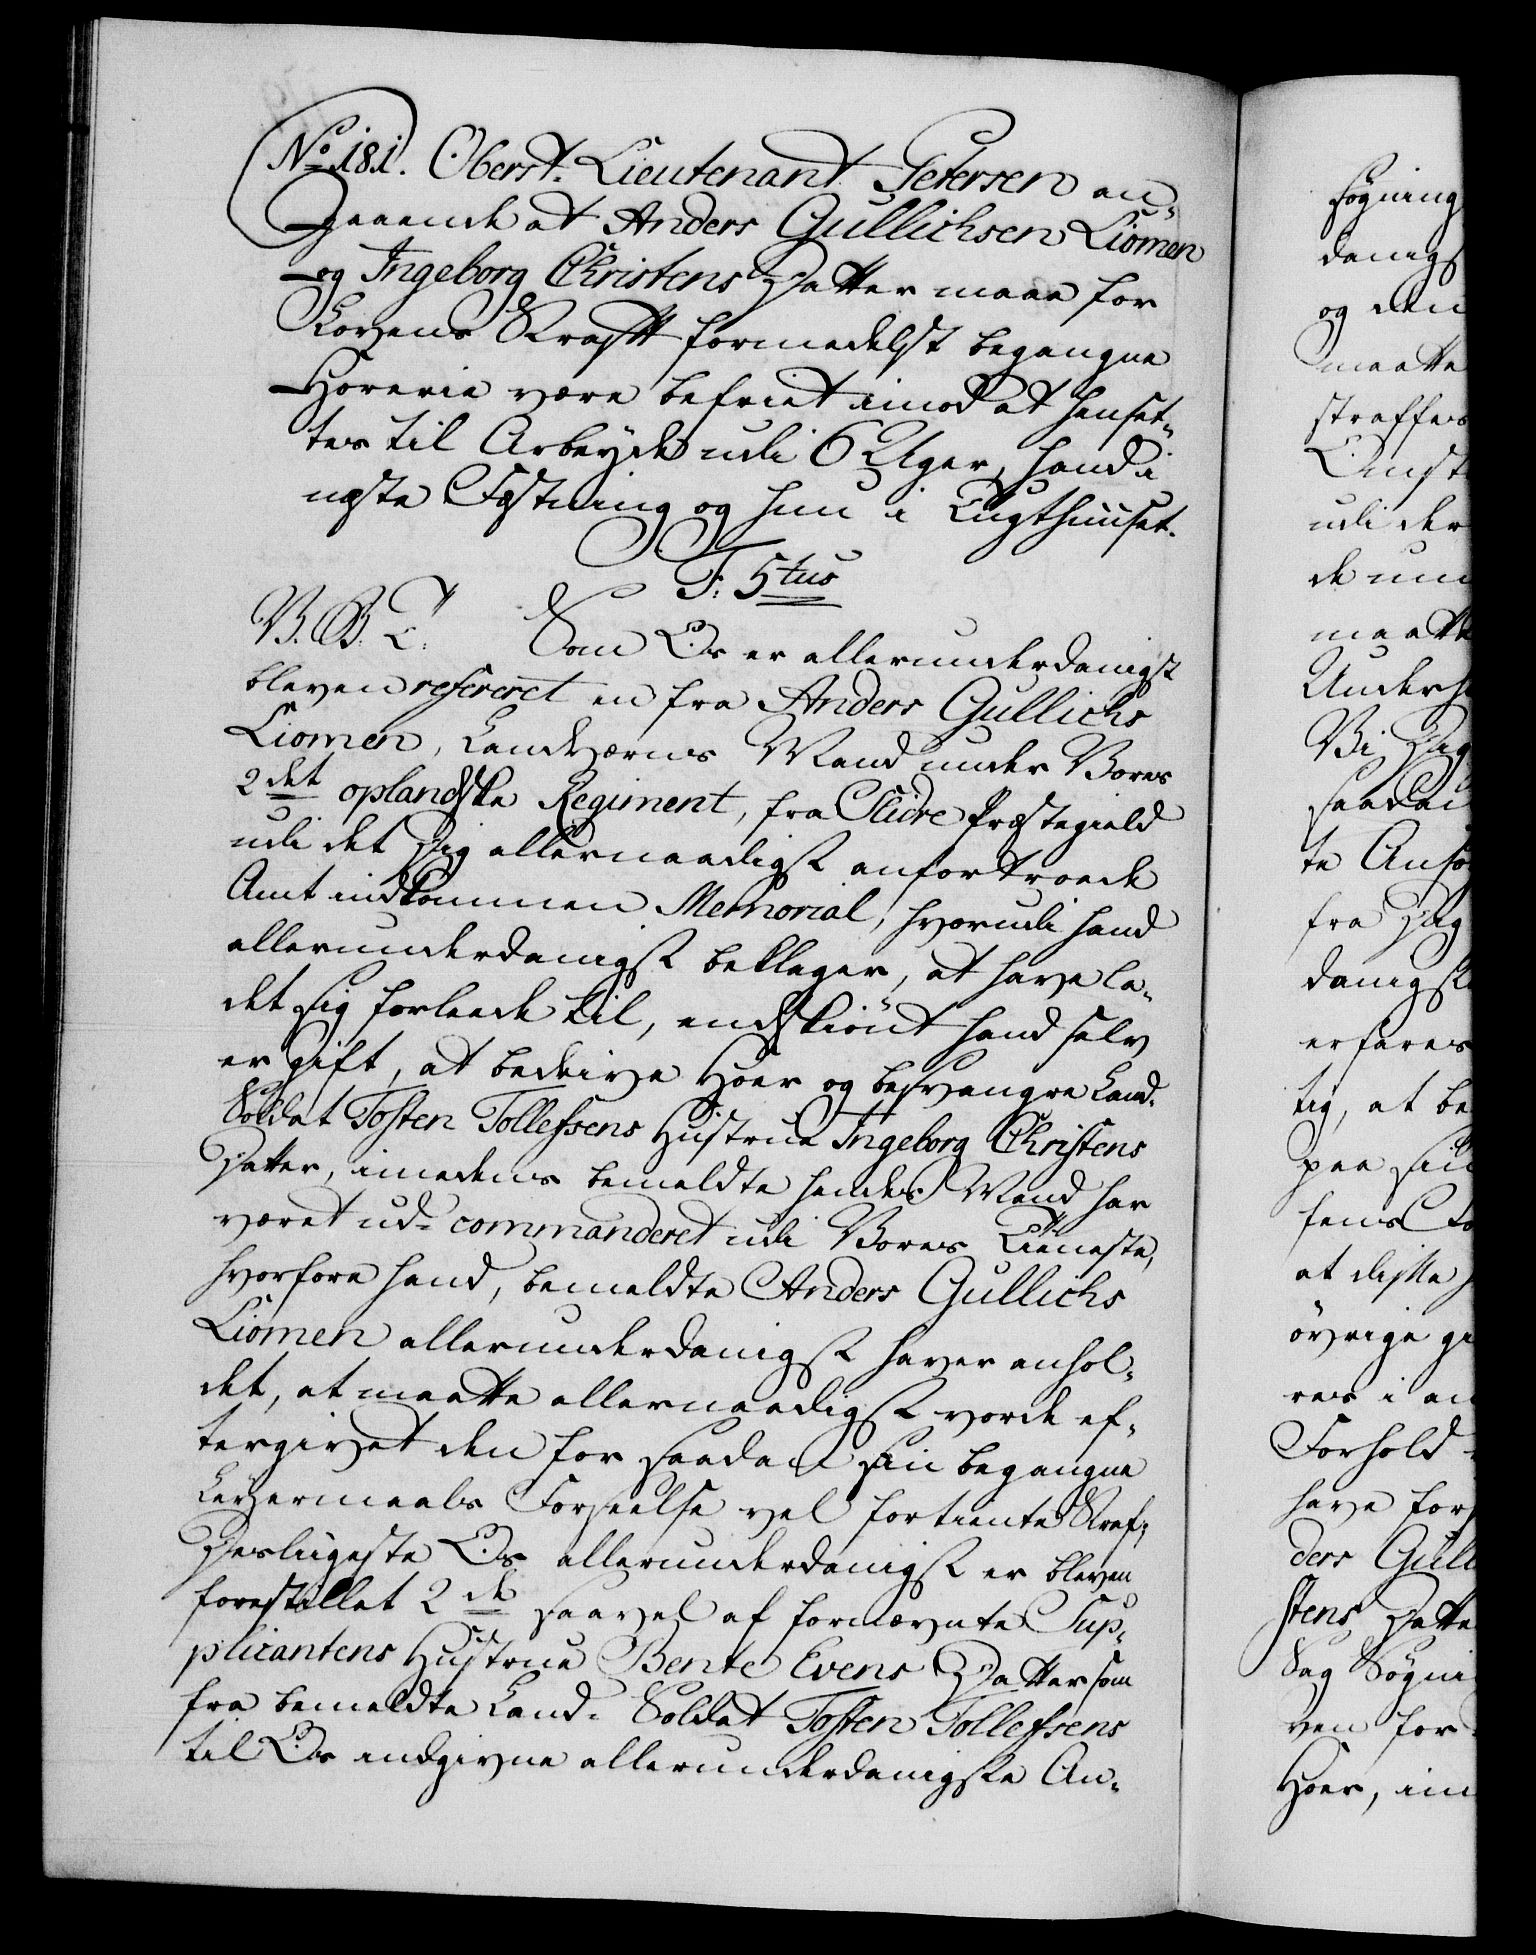 No 181. Oberst-Lieutenant Petersen an-
gaaende at Anders Gullichsen Liomen
og Ingeborg Christens Datter maae for
Lovens Straff formedelst begangne
Horerie være befriet imod at hensæt-
tes til Arbeyde udi 6 Uger, hand i
næste Fæstning og hun i Tugthuuset.
F: 5tus
V. G. T. Som Os er allerunderdanigst
bleven refereret en fra Anders Gullichs
Liomen, Landværns Mand under Vores
2det oplandske Regiment, fra Slidre Præstegield
udi det Dig allernaadigst anfortroede
Amt indkommen Memorial, hvorudi hand
allerunderdanigst beklager, at have la-
det sig forleede til, endskiönt hand selv
er gift, at bedrive Hoer og besvangre Land-
Soldat Tosten Tollefsens Hustrue Ingeborg Christens
Datter, imedens bemeldte hendes Mand har
været ud-commanderet udi Vores Tieneste,
hvorfore hand, bemeldte Anders Gullichs
Liomen allerunderdanigst haver anhol-
det, at maatte allernaadigst vorde ef-
tergivet den for saadan sin begangne
Leyermaals Forseelse vel fortiente Straf,
Desligeste Os allerunderdanigst er bleven
forestillet 2de saavel af fornævnte Sup-
plicantens Hustrue Bente Evens Datter som
fra bemeldte Land-Soldat Tosten Tollefsens
til Os indgivne allerunderdanigste An-
søgning
danigs
og den
maatte
straffes
Omst
udi der
de un
maatte
Undersø
Vi Dig
saada
te Ansø
fra Dig
danigst
erfares
tig, at be
paa sin
sens
at disse
övrige gi
res i an
Forhold
have for
ders Gull
stens Datte
Sag Søgni
ven for
Hoer, im